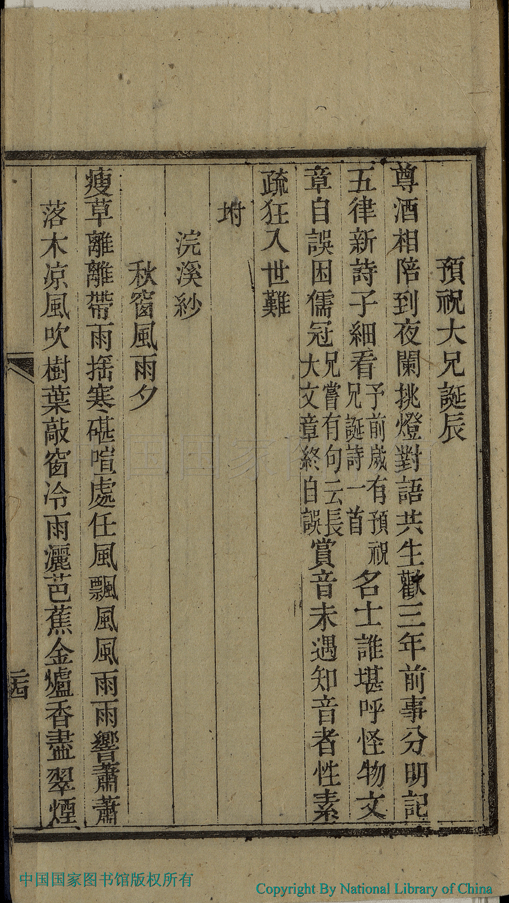 預祝大兄誕辰
尊酒相陪到夜闌挑燈對語共生歡三年前事分明記
五律新詩子細看予前歲有預祝兄誕詩一首名士誰堪呼怪物文
章自誤困儒冠兄嘗有句云長大文章終自誤賞音未遇知音者性素
疏狂入世難
坿
浣溪紗
秋窗風雨夕
瘦草離離帶雨搖寒碪喧處任風飄風風雨雨響蕭蕭
落木凉風吹樹葉敲窗冷雨灑芭蕉金爐香盡翠煙
中国国家图书馆版权所有
Copyright By National Library of China